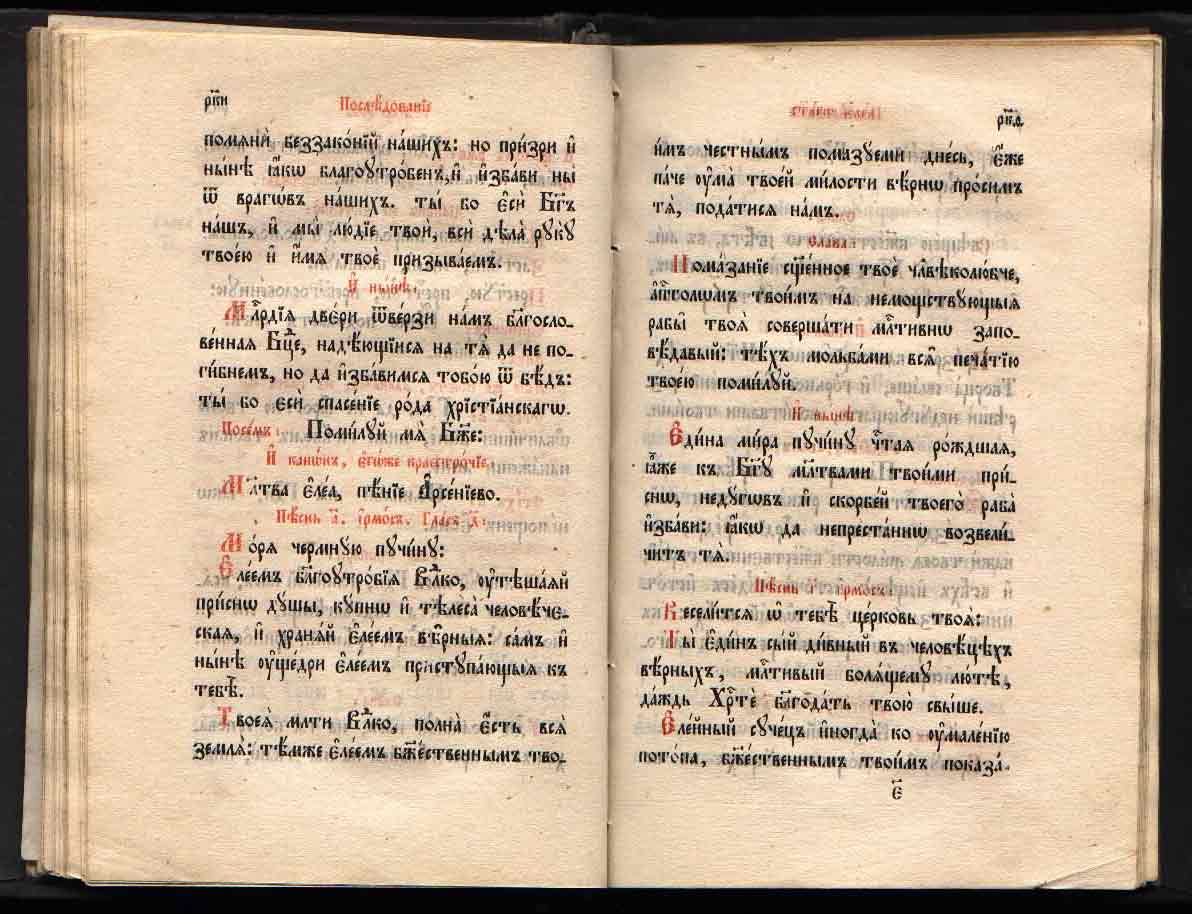 рк҃и
Послѣ́дованїе
помѧнѝ беззако́нїй на́шихъ: но при́зри и҆
ны́нѣ ꙗ҆́кѡ благоꙋтро́бенъ, и҆ и҆зба́ви ны̀
ѿ врагѡ́въ на́шихъ. ты́ бо є҆сѝ Бг҃ъ
на́шъ, и҆ мы̀ лю́дїе твоѝ, всѝ дѣ́ла рꙋкꙋ̀
твоє́ю и҆ и҆́мѧ твоѐ призыва́емъ.
И҆ ны́нѣ.
Млⷭ҇рдїѧ две́ри ѿве́рзи на́мъ бл҃госло-
ве́нная Бцⷣе, надѣ́ющїисѧ на тѧ̀ да не по-
ги́бнемъ, но да и҆зба́вимсѧ тобо́ю ѿ бѣ́дъ:
ты́ бо є҆сѝ спасе́нїе ро́да хрїстїа́нскагѡ.
Посе́мъ: Поми́лꙋй мѧ̀ Бж҃е:
И҆ канѡ́нъ, є҆гѡ́же краестро́чїе,
Мл҃тва є҆ле́а, пѣ́нїе А҆рсе́нїево.
Пѣ́снь а҃. і҆рмо́съ. Гла́съ д҃.
Мо́рѧ чермнꙋ́ю пꙋчи́нꙋ:
Є҆ле́емъ бл҃гоꙋтро́бїѧ Влⷣко, ᲂу҆тѣша́яй
при́снѡ дꙋ́шы, кꙋ́пнѡ и҆ тѣлеса̀ человѣ́че-
ская, и҆ хранѧ́й є҆ле́емъ вѣ́рныѧ: са́мъ и҆
ны́нѣ ᲂу҆ще́дри є҆ле́емъ пристꙋпа́ющыѧ къ
тебѣ̀.
Твоеѧ̀ млⷭ҇ти Влⷣко, полна̀ є҆́сть всѧ̀
землѧ̀: тѣ́мже є҆ле́емъ бж҃е́ственнымъ тво-
свѧта́гѡ є҆ле́а
рк҃ѳ
и́мъ честны́мъ помазꙋ́еми дне́сь, є҆́же
па́че ᲂу҆ма̀ твое́й ми́лости вѣ́рнѡ про́симъ
тѧ̀, пода́тисѧ на́мъ.
Сла́ва:
Помаза́нїе сщ҃е́нное твоѐ чл҃вѣколю́бче,
а҆пⷭ҇толѡмъ твои́мъ на немощствꙋ́ющыѧ
рабы̀ твоѧ̀ соверша́ти млⷭ҇тивнѡ запо-
вѣ́давый: тѣ́хъ мольба́ми всѧ̀ печа́тїю
твое́ю поми́лꙋй.
И҆ ны́нѣ:
Є҆ди́на ми́ра пꙋчи́нꙋ чⷭ҇тая ро́ждшая,
ꙗ҆́же къ Бг҃ꙋ мл҃твами твои́ми при́-
снѡ, недꙋ́гѡвъ и҆ скорбе́й твоего̀ раба̀
и҆зба́ви: ꙗ҆́кѡ да непреста́ннѡ возвели́-
читъ тѧ̀.
Пѣ́снь г҃. і҆рмо́съ:
Весели́тсѧ ѡ҆ тебѣ̀ це́рковь твоѧ̀:
Ты̀ є҆ди́нъ сы́й ди́вный въ человѣ́цѣхъ
вѣ́рныхъ, млⷭ҇тивый болѧ́щемꙋ лю́тѣ,
да́ждь Хрⷭ҇тѐ бл҃года́ть твою̀ свы́ше.
Є҆ле́йный сꙋче́цъ и҆ногда̀ ко ᲂу҆мале́нїю
пото́па, бж҃е́ственнымъ твои́мъ показа́-
є҃